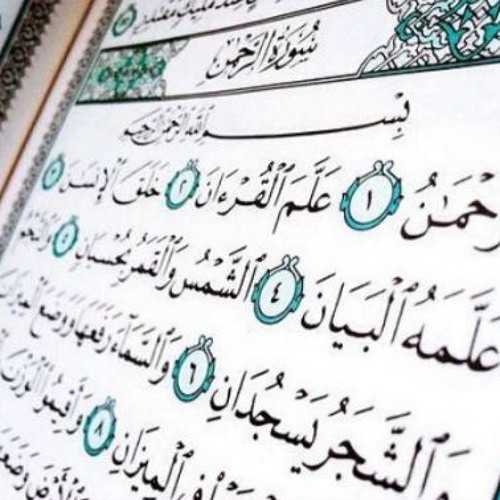 سُورَةُ الرَّحْمٰن
بِسْمِ اللَّهِ الرَّحْمَٰنِ الرَّحِيمِ
رَحْمَٰنُ ١ عَلَّمَ ٱلْقُرْءَانَ ٢ خَلَقَ ٱلْإِنسَٰنَ ٣
عَلَّمَهُ ٱلْبَيَانَ ٤ ٱلشَّمْسُ وَٱلْقَمَرُ بِحُسْبَانٍ ٥ وَٱلنَّجْمُ
وَٱلشَّجَرُ يَسْجُدَانِ ٦ وَٱلسَّمَآءَ رَفَعَهَا وَوَضَعَ ٱلْمِيزَانَ
ٱلْمِيزَانِ ٨ وَأَقِيمُوا۟ ٱلْوَزْنَ